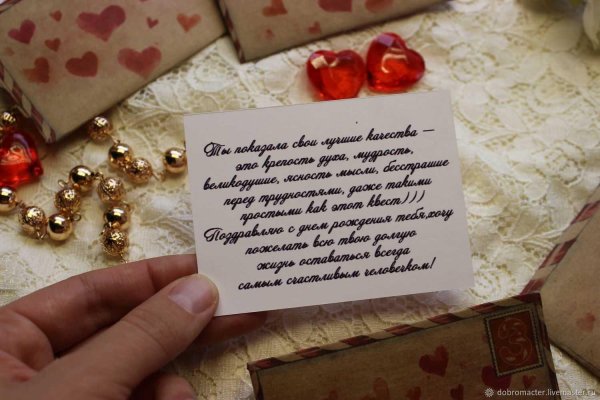 Ты показала свои лучшие качества —
это крепость духа, мудрость,
великодушие, ясность мысли, бесстрашие
перед трудностями, даже такими
простыми как этот квест)))
Поздравляю с днем рождения тебя,хочу
пожелать всю твою долгую
жизнь оставаться всегда
самым счастливым человечком!
dobromacter.livemaster.ru